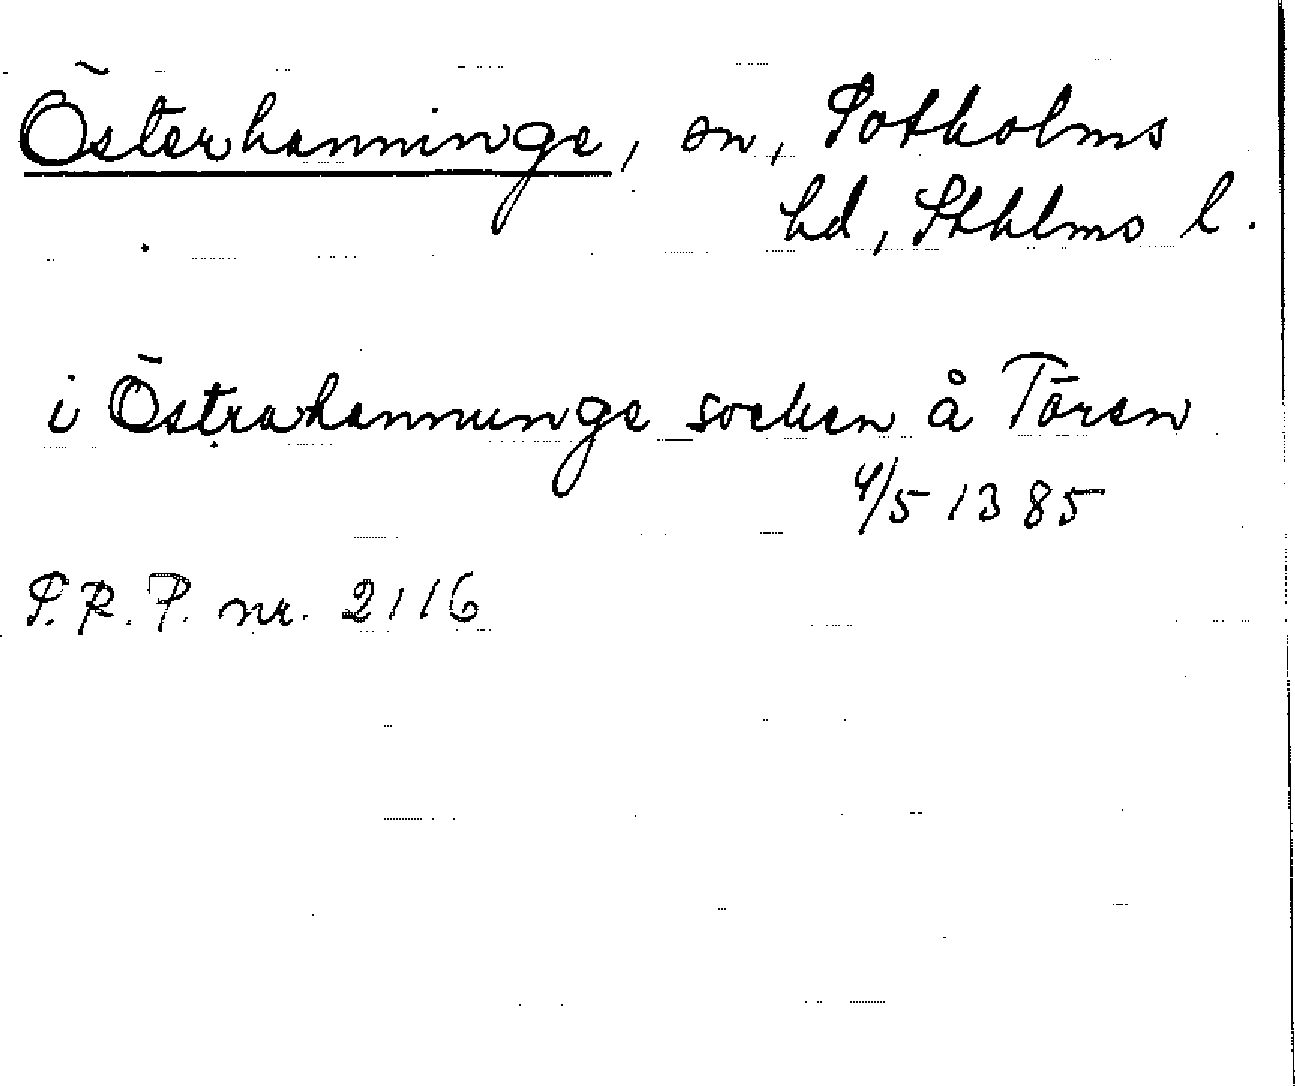 Österhanninge, sn, Sotholms
hd, Sthlms l.
i Östrahannunge socken å Tören
4/5 1385
S.R.P. nr. 2116